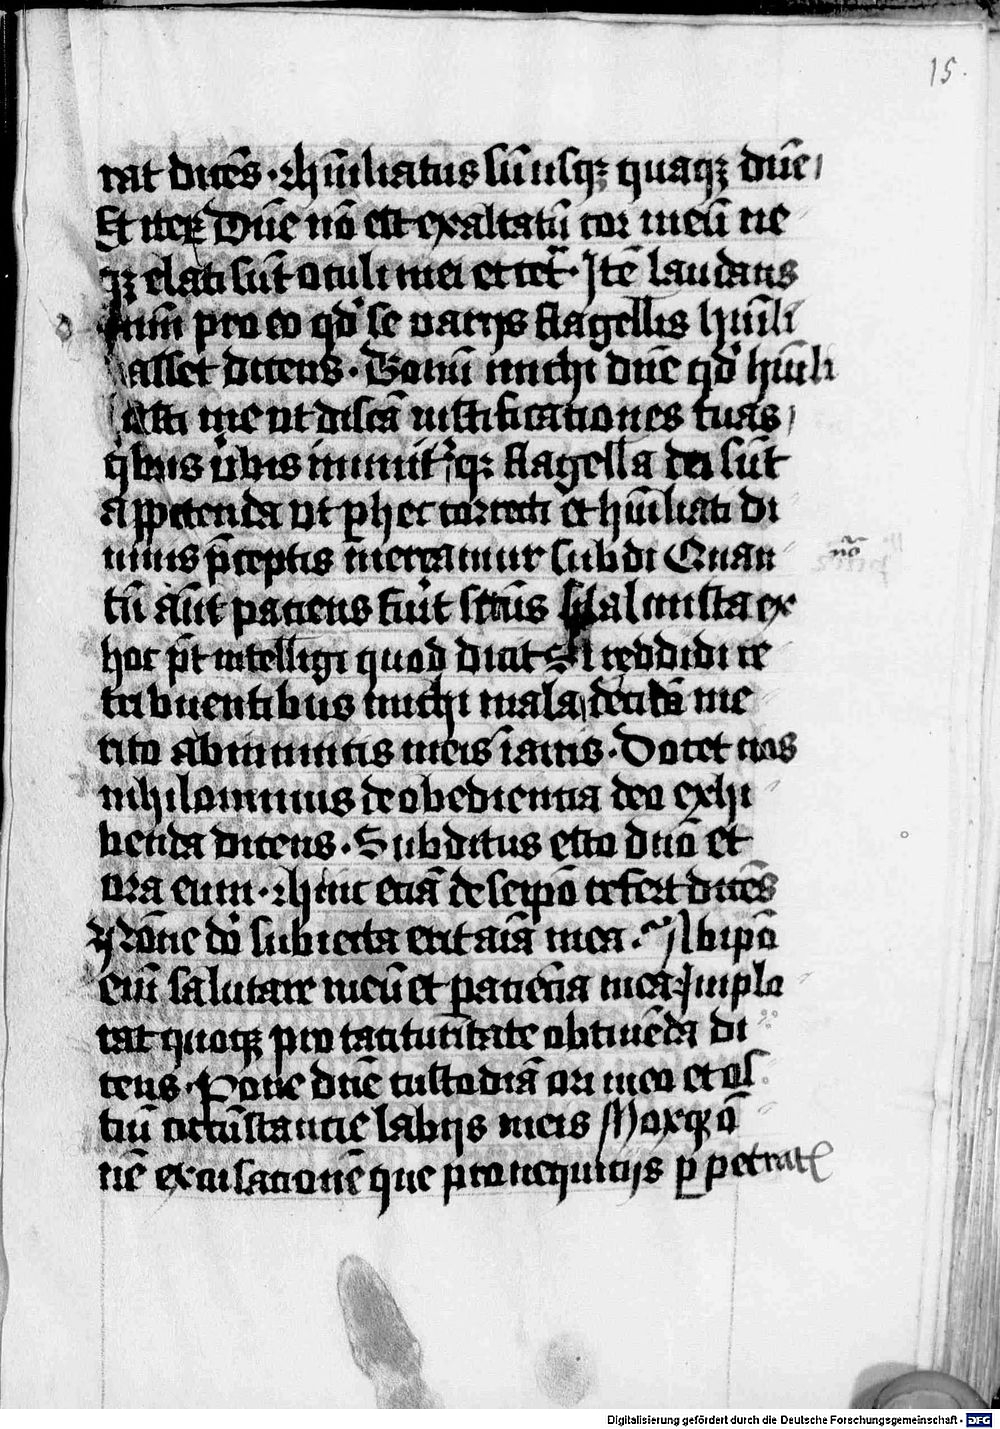 15.
rat dicēs. Hūiliatus sū usqꝫ quaqꝫ dūe
Et iteꝝ Dūe nō est exaltatū cor meū ne
qꝫ elati sūt oculi mei et cet̄. Itē laudans
pro eo qd̓ se varijs flagellis hūili
asset dicens. Bonū michi dūe qd̓ hūili
asti me ut discā iustificationes tuas
qͥbus v̓bis qꝫ flagella dei sūt
appetenda vt ꝑ hec correcti et hūiliati di
uinis p̄ceptis mereamur subdi Quan
tū aūt paciens fuit sctūs psalmista ex
hoc pt̄ intelligi quod dicit Si reddidi re
tribuentibus michi mala decidā me
rito ab inimicis meis īanis. Docet nos
nihilominus de obediencia deo exhi
benda dicens. Subditus esto dn̄o et
ora eum. Hinc eciā de seip̄o refert dicēs
Nōne dō subiecta erit aīa mea. Ab ip̄o
eni̅ salutare meū et paciēcia mea Implo
rat quoqꝫ pro taciturnitate obtinēda di
cens. Pone dūe custodiā ori meo et os
tiū circūstancie labijs meis Moxqꝫ ō
nē excusacionē que pro nequicijs ꝑpetrat
Digitalisierung gefördert durch die Deutsche Forschungsgemeinschaft - DFG